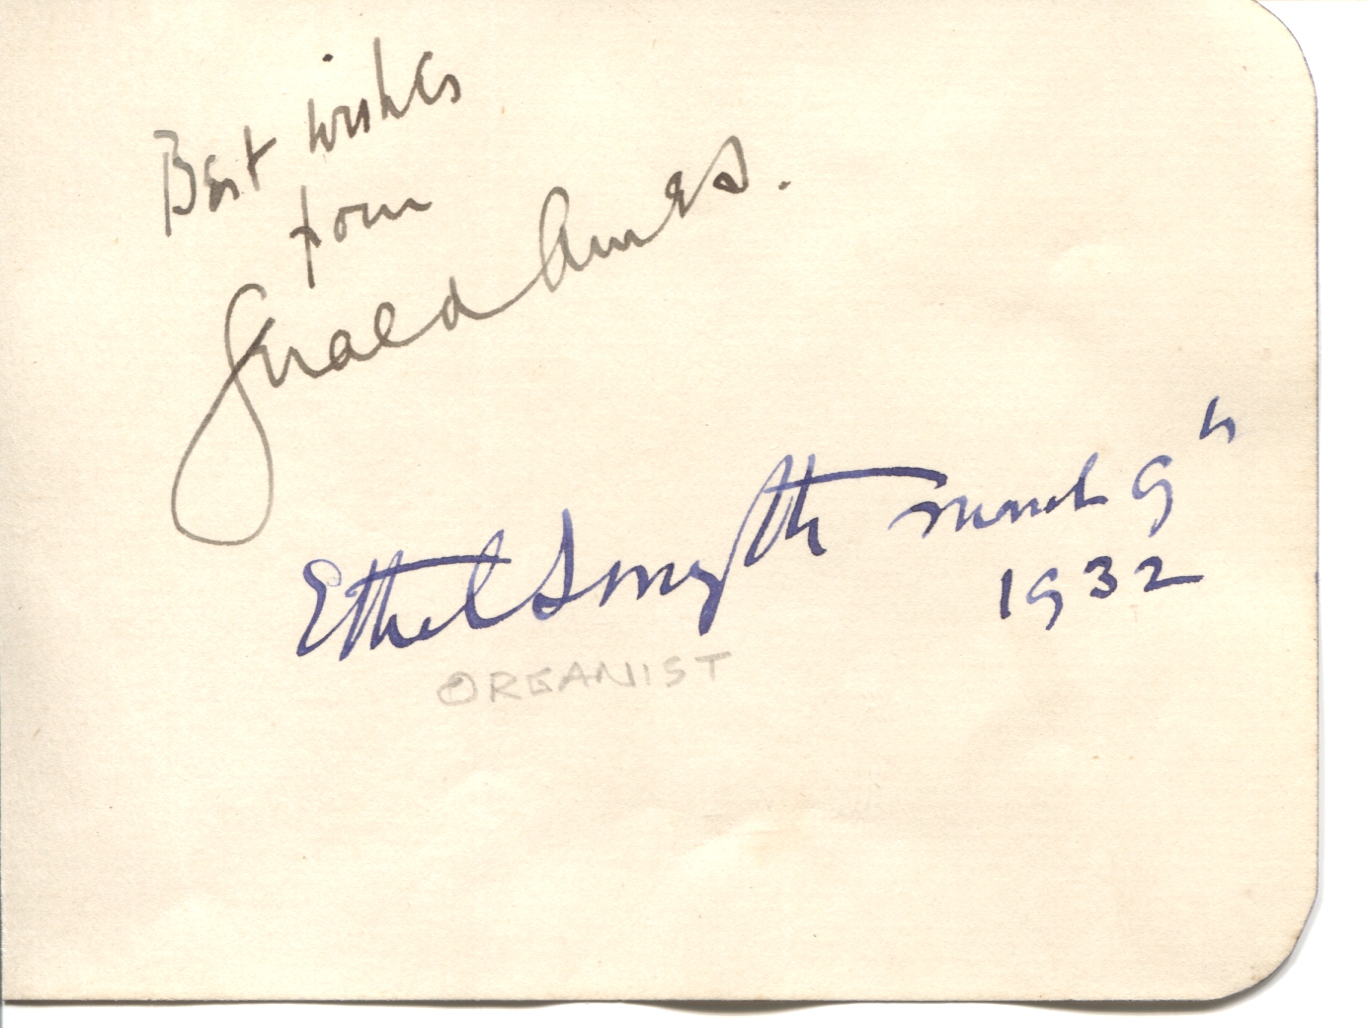 Best wishes
from
Gerald Ames.
Ethel Smyth March 9th
1932
ORGANIST